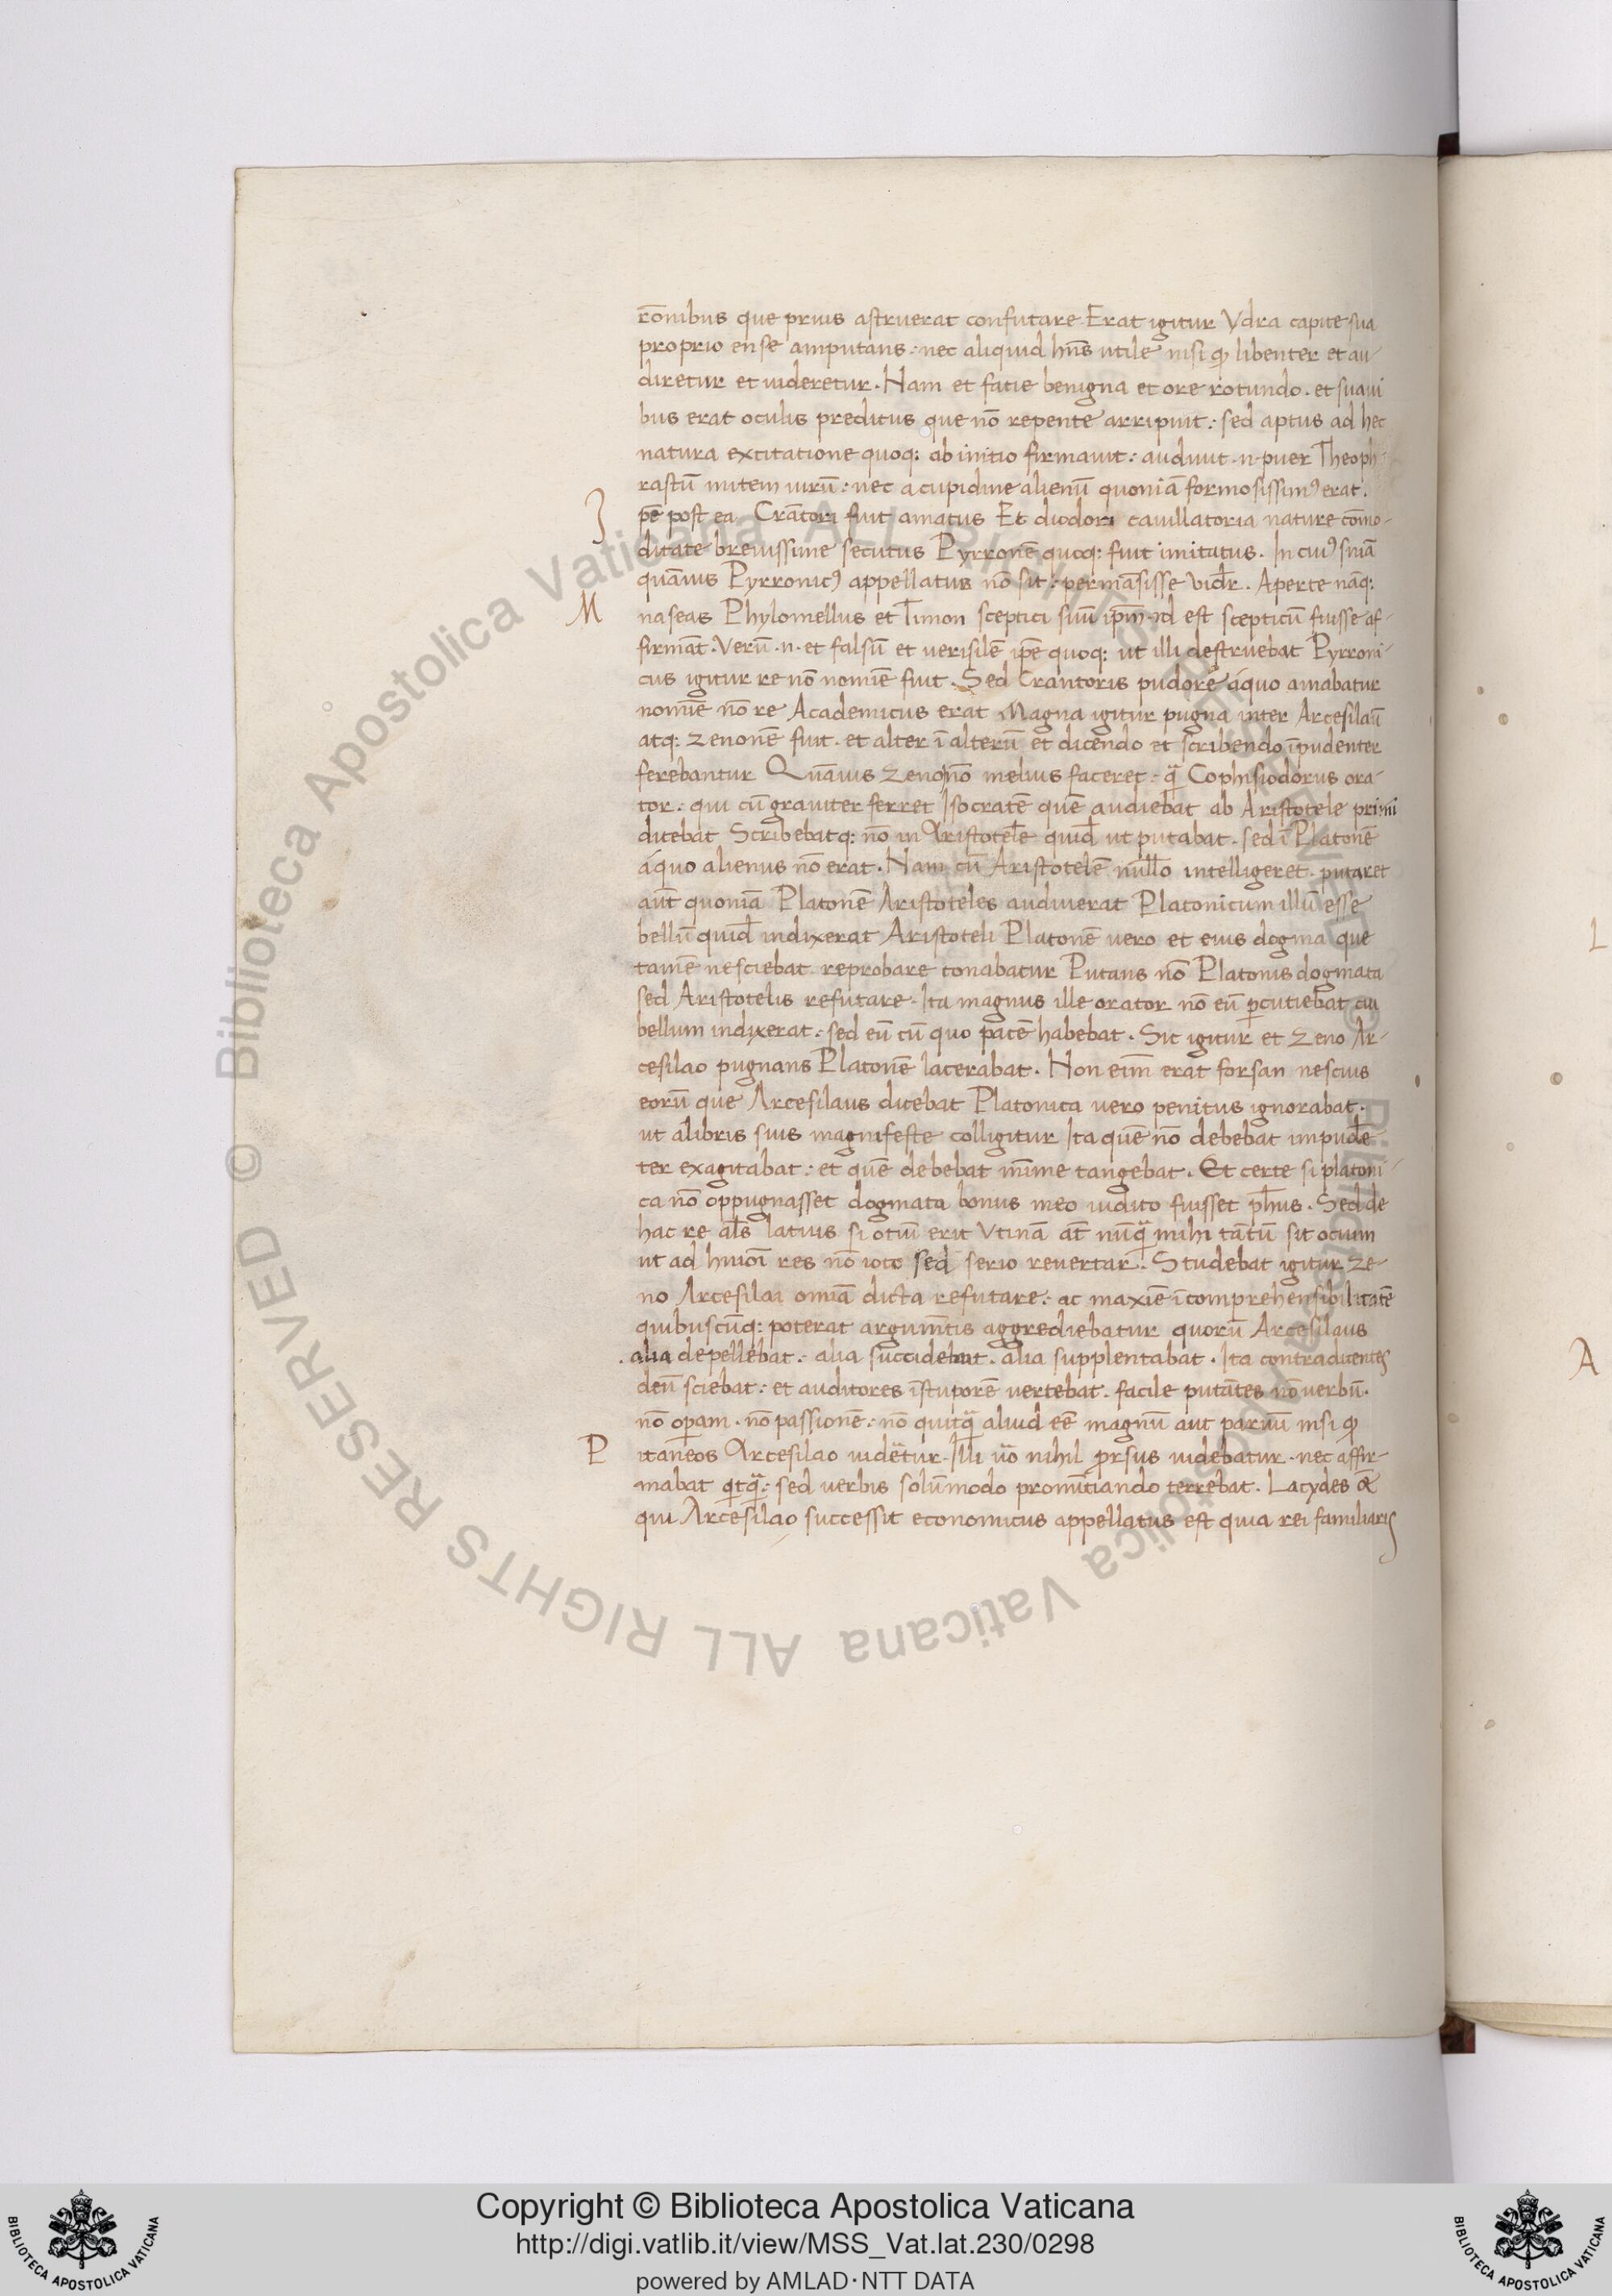 rōnibus que prius astruerat confutare Erat igitur Vdra capite sua
proprio ense amputans: nec aliquid hn̄s utile nisi qɔ libenter et au-
diretur et uideretur. Nam et facie benigna et ore rotundo. et suaui
bus erat oculis preditus que nō repente arripuit: sed aptus ad hec
natura excitatione quoq: ab initio firmauit: audiuit .n. puer Theoph-
rastū mitem uirū: nec a cupidine alienū quoniā formosissimꝰ erat.
I pē post ea Crātori fuit amatus Et diodori cauillatoria nature cōmo-
ditate breuissime secutus Pyrronē quoq: fuit imitatus. In cuiꝰ sniā
quāuis Pyrronicꝰ appellatus nō sit: permāsisse uidr̄. Aperte nāq:
M naseas Phylomellus et Timon sceptici suū ip̄m id est scepticū fuisse af-
firmāt. Verū .n. et falsū et uerisilē ip̄e quoq: ut illi destruebat Pyrroni-
cus igitur re nō nomīe fuit. Sed Crantoris pudore áquo amabatur
nomīe nō re Academicus erat Magna igitur pugna inter Arcesilaū
atq: Zenonē fuit. et alter ī alterū et dicendo et scribendo īpudenter
ferebantur Quāuis Zeno nō melius faceret: q̄ Cophisiodorus ora-
tor: qui cū grauiter ferret Isocratē quē audiebat ab Aristotele primi
dicebat Scribebatq: nō in Aristotelē quid̄ ut putabat. sed ī Platonē
áquo alienus nō erat. Nam cū Aristotelē null̄o intelligeret. putaret
aūt quoniā Platonē Aristoteles audiuerat Platonicum illū esse
bellū quid̄ indixerat Aristoteli Platonē uero et eius dogma que
tamē nesciebat reprobare conabatur Putans nō Platonis dogmata
sed Aristotelis refutare. Ita magnus ille orator nō eū ꝑcutiebat cui
bellum indixerat: sed eū cū quo pacē habebat. Sic igitur et Zeno Ar-
cesilao pugnans Platonē lacerabat. Non eim̄ erat forsan nescius
eorū que Arcesilaus dicebat Platonica uero penitus ignorabat.
ut alibris suis magnifeste colligitur Ita quē nō debebat impudē
ter exagitabat: et quē debebat mīime tangebat. Et certe si platoni-
ca nō oppugnasset dogmata bonus meo iudicio fuisset ph̄us. Sed de
hac re al̄s latius si otiū erit Vtinā āt nūq̄ mihi tātū sit ocium
ut ad huiōi res nō ioco sed serio reuertar. Studebat igitur Ze-
no Arcesilai omīa dicta refutare: ac maxīe īcomprehensibilitatē
quibuscūq: poterat argumn̄tis aggrediebatur quorū Arcesilaus
alia depellebat: alia succidebat. alia supplentabat. Ita contradicentes
deū sciebat: et auditores īstuporē uertebat. facile putātes nō uerbū.
nō oꝑam. nō passionē: nō quicq̄ aliud eē magnū aut paruū nisi qɔ
P itaneos Arcesilao uidētur. Illi ūo nihil prorsus uidebatur. nec affir-
mabat qcq̄: sed uerbis solūmodo pronūtiando terrebat. Lacydes &
qui Arcesilao successit economicus appellatus est quia rei familiaris
L
A
© Biblioteca Apostolica Vaticana ALL RIGHTS RESERVED
Copyright © Biblioteca Apostolica Vaticana
http://digi.vatlib.it/view/MSS_Vat.lat.230/0298
powered by AMLAD·NTT DATA
BIBLIOTECA APOSTOLICA VATICANA
BIBLIOTECA APOSTOLICA VATICANA